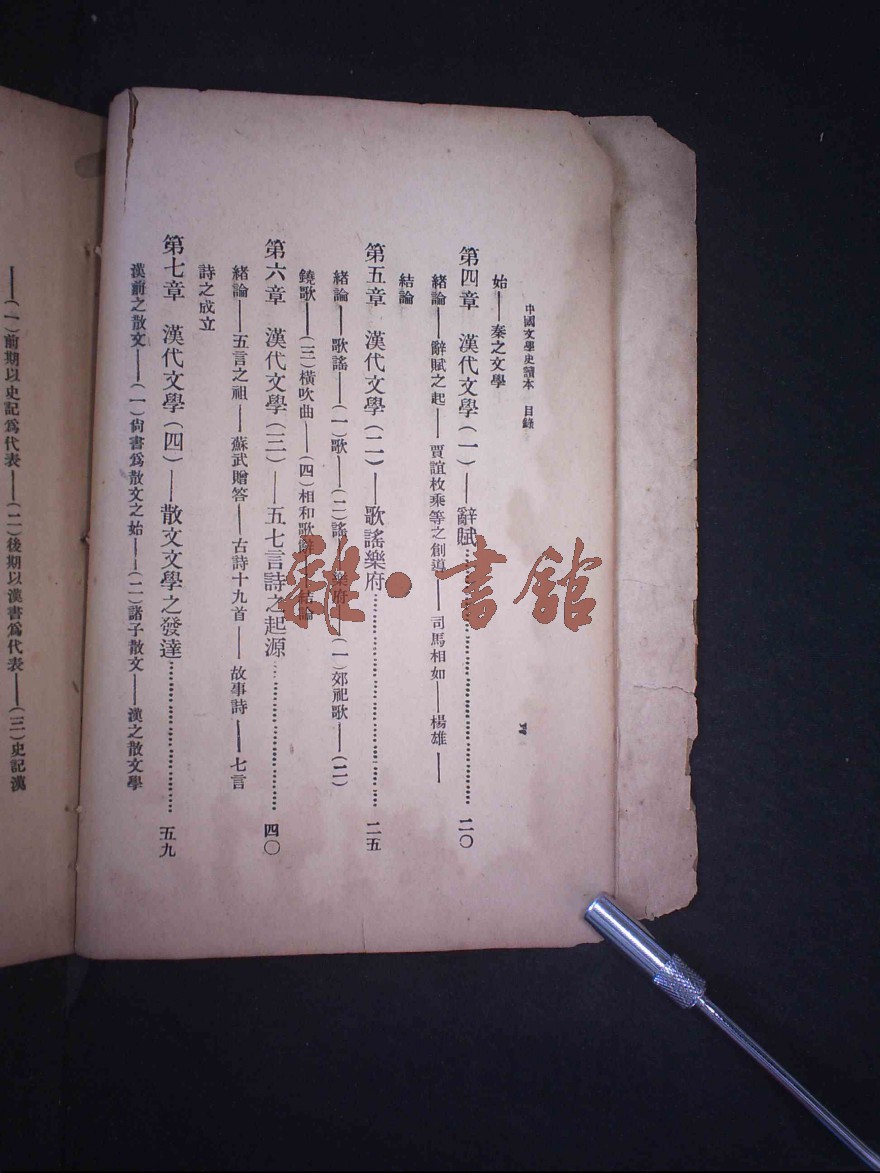 中國文學史讀本　目錄
始——秦之文學
第四章　漢代文學（一）——辭賦……二〇
緒論——辭賦之起——賈誼枚乘等之創導——司馬相如——楊雄——
結論
第五章　漢代文學（二）——歌謠樂府……二五
緒論——歌謠——（一）歌——（二）謠——樂府——（一）郊祀歌——（二）
鐃歌——（三）橫吹曲——（四）相和歌辭——結論
第六章　漢代文學（三）——五七言詩之起源……四〇
緒論——五言之祖——蘇武贈答——古詩十九首——故事詩——七言
詩之成立
第七章　漢代文學（四）——散文文學之發達……五九
漢前之散文——（一）尚書爲散文之始——（二）諸子散文——漢之散文學
——（一）前期以史記爲代表——（二）後期以漢書爲代表——（三）史記漢
雜·書館